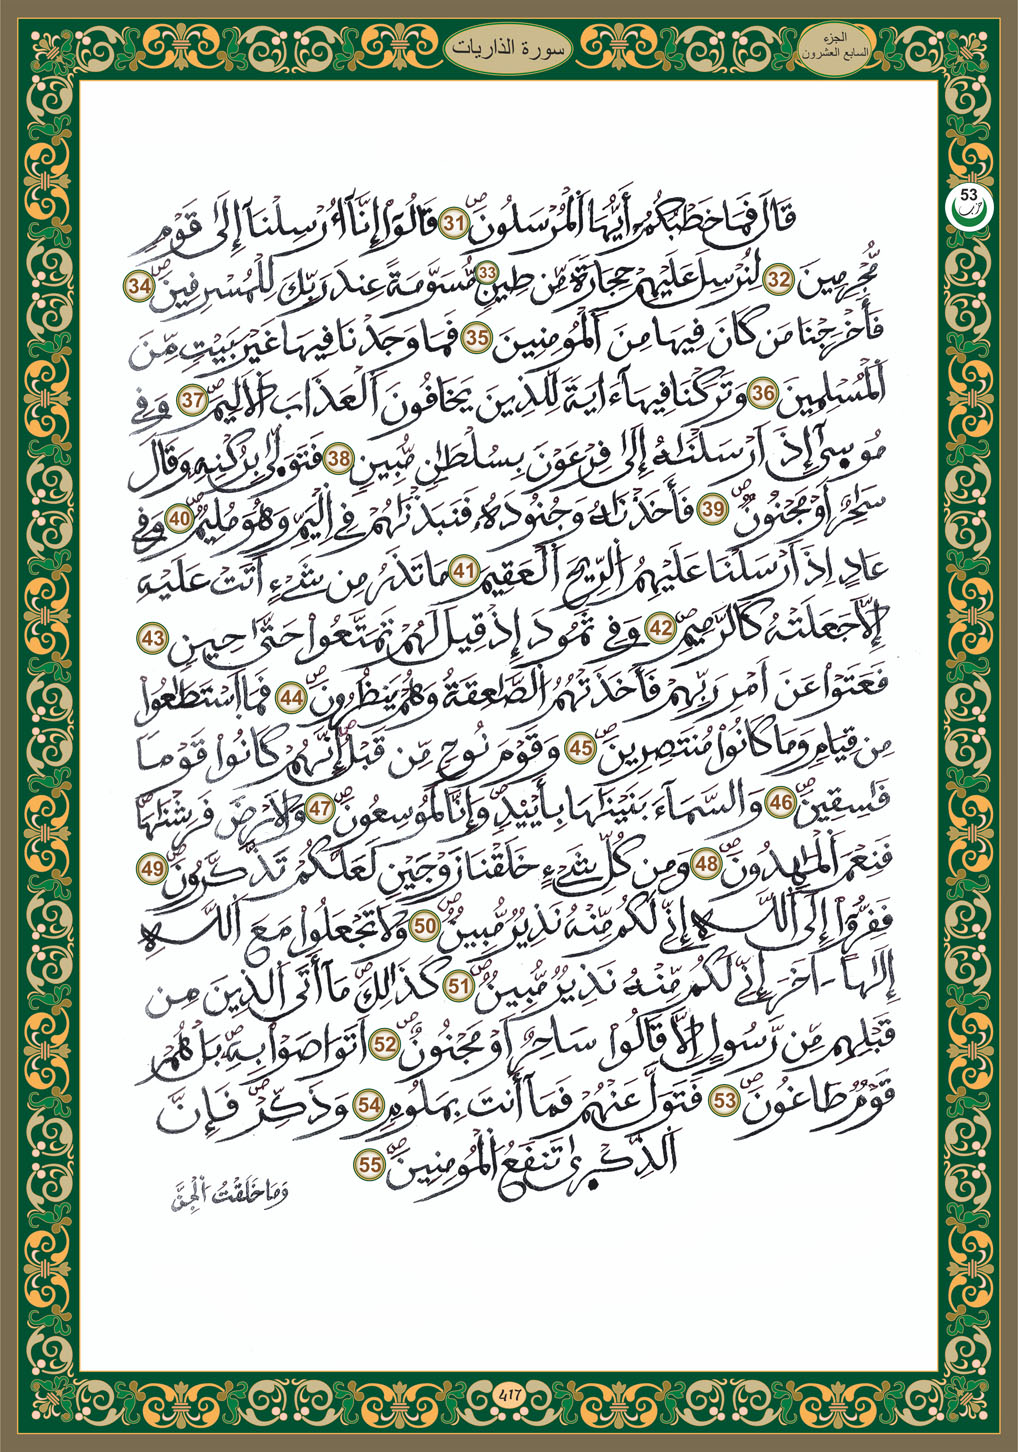 سورة الذاريات
الجزء
السابع العشرون
53
حزب
قَالَ فَمَا خَطْبُكُمُۥٓ أَيُّهَا اَ۬لْمُرْسَلُونَۖ 31 قَالُوٓاْ إِنَّآ أُرْسِلْنَآ إِلَىٰ قَوْمٖ
مُّجْرِمِينَ 32 لِنُرْسِلَ عَلَيْهِمْ حِجَارَةٗ مِّن طِينٖ 33 مُّسَوَّمَةً عِندَ رَبِّكَ لِلْمُسْرِفِينَۖ 34
فَأَخْرَجْنَا مَن كَانَ فِيهَا مِنَ اَ۬لْمُومِنِينَ 35 فَمَا وَجَدْنَا فِيهَا غَيْرَ بَيْتٖ مِّنَ
اَ۬لْمُسْلِمِينَ 36 وَتَرَكْنَا فِيهَآ ءَايَةٗ لِّلذِينَ يَخَافُونَ اَ۬لْعَذَابَ اَ۬لَالِيمَۖ 37 وَفِے
مُوس۪يٰٓ إِذَ اَرْسَلْنَٰهُ إِلَىٰ فِرْعَوْنَ بِسُلْطَٰنٖ مُّبِينٖ 38 فَتَوَلّ۪يٰ بِرُكْنِهِۦ وَقَالَ
سَٰحِرٌ اَوْ مَجْنُونٞۖ 39 فَأَخَذْنَٰهُ وَجُنُودَهُۥ فَنَبَذْنَٰهُمْ فِے اِ۬لْيَمِّ وَهُوَ مُلِيمٞۖ 40 وَفِے
عَادٍ اِذَ اَرْسَلْنَا عَلَيْهِمُ اُ۬لرِّيحَ اَ۬لْعَقِيمَ 41 مَا تَذَرُ مِن شَےْءٍ اَتَتْ عَلَيْهِ
إِلَّا جَعَلَتْهُ كَالرَّمِيمِۖ 42 وَفِے ثَمُودَ إِذْ قِيلَ لَهُمْ تَمَتَّعُواْ حَتَّىٰ حِينٖ 43
فَعَتَوْاْ عَنَ اَمْرِ رَبِّهِمْ فَأَخَذَتْهُمُ اُ۬لصَّٰعِقَةُ وَهُمْ يَنظُرُونَۖ 44 فَمَا اَ۪سْتَطَٰعُواْ
مِن قِيَامٖ وَمَا كَانُواْ مُنتَصِرِينَۖ 45 وَقَوْمَ نُوحٖ مِّن قَبْلُ إِنَّهُمْ كَانُواْ قَوْماٗ
فَٰسِقِينَۖ 46 وَالسَّمَآءَ بَنَيْنَٰهَا بِأَيْيْدٖ وَإِنَّا لَمُوسِعُونَۖ 47 وَالَارْضَ فَرَشْنَٰهَا
فَنِعْمَ اَ۬لْمَٰهِدُونَۖ 48 وَمِن كُلِّ شَےْءٍ خَلَقْنَا زَوْجَيْنِ لَعَلَّكُمْ تَذَّكَّرُونَۖ 49
فَفِرُّوٓاْ إِلَى اَ۬للَّهِ إِنِّے لَكُم مِّنْهُ نَذِيرٞ مُّبِينٞۖ 50 وَلَا تَجْعَلُواْ مَعَ اَ۬للَّهِ
إِلَٰهاً ـ اخَرَ إِنِّے لَكُم مِّنْهُ نَذِيرٞ مُّبِينٞۖ 51 كَذَٰلِكَ مَآ أَتَى اَ۬لذِينَ مِن
قَبْلِهِم مِّن رَّسُولٍ اِلَّا قَالُواْ سَاحِرٌ اَوْ مَجْنُونٌۖ 52 اَتَوَاصَوْاْ بِهِۦۖ بَلْ هُمْ
قَوْمٞ طَاغُونَۖ 53 فَتَوَلَّ عَنْهُمْ فَمَآ أَنتَ بِمَلُومٖ 54 وَذَكِّرْۖ فَإِنَّ
اَ۬لذِّكْر۪ىٰ تَنفَعُ اُ۬لْمُومِنِينَۖ 55
وَمَا خَلَقْتُ اُ۬لْجِنَّ
417